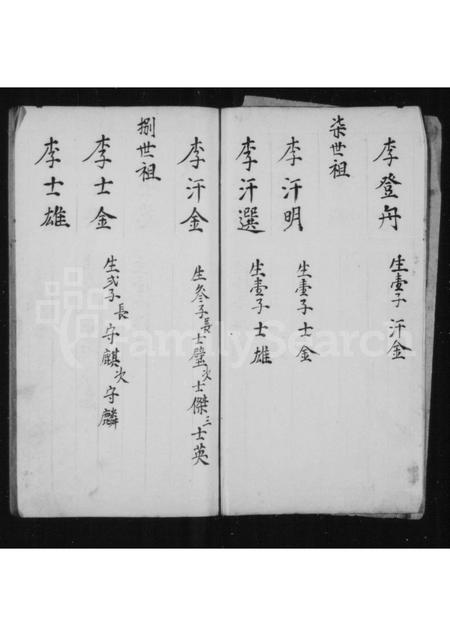 李登舟 生壹子汗金
柒世祖
李汗明 生壹子士金
李汗選 生壹子士雄
李汗金 生叄子長士璧次士傑三士英
捌世祖
李士金 生弍子長守麒次守麟
李士雄
FamilySearch